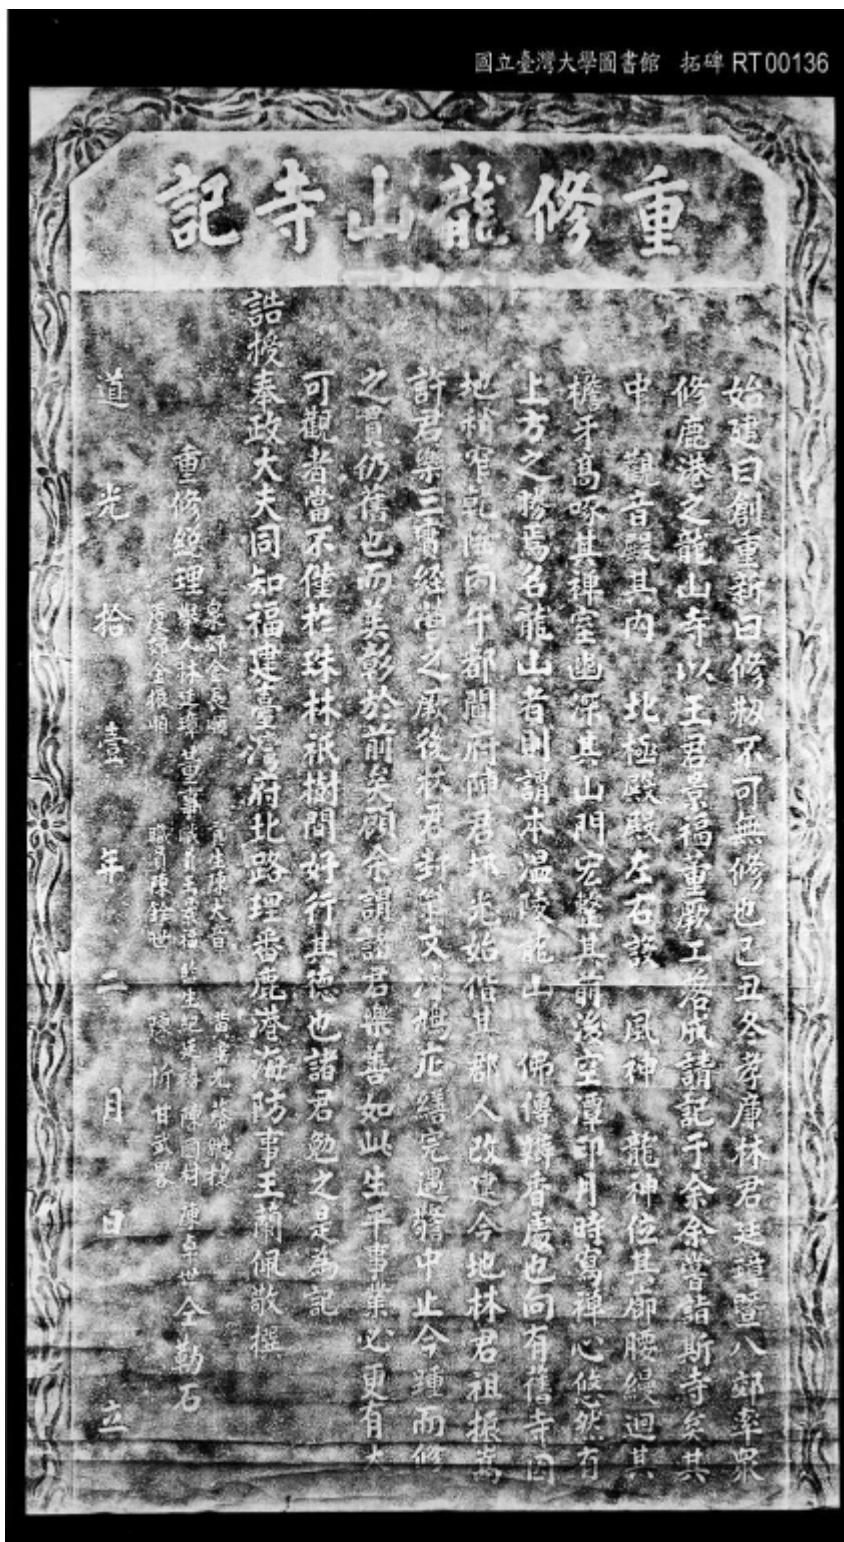 國立臺灣大學圖書館 拓碑 RT00136
重修龍山寺記
始建曰創重新曰修刱不可無修也己丑冬孝廉林君廷璋暨八郊率眾
修鹿港之龍山寺以王君景福董厥工落成請記于余余嘗詣斯寺矣其
中 觀音殿其內 北極殿殿左右設 風神 龍神位其廊腰縵迴其
檐牙高啄其禪室幽深其山門宏整其前後空潭印月時寫禪心悠然有
上方之勝焉名龍山者則謂本温陵龍山 佛傳瓣香處也向有舊寺因
地稍窄乾隆丙午都閫府陳君邦光始偕其郡人改建今地林君祖振嵩
許君樂三實經營之厥後林君封翁文濬鳩庀繕完遇難中止今踵而修
之貫仍舊也而美彰於前矣顧余謂諸君樂善如此生平事業必更有大
可觀者當不僅於珠林祇樹間好行其德也諸君勉之是為記
誥授奉政大夫同知福建臺灣府北路理番鹿港海防事王蘭佩敬撰
重修總理 泉郊金長順 舉人林廷璋 廈郊金振順 董事 陳大 職員王景福 職員陳銓世 蔡鵬 陳國材 甘武畧 陳 世 仝勒石
道光拾壹年二月 日 立